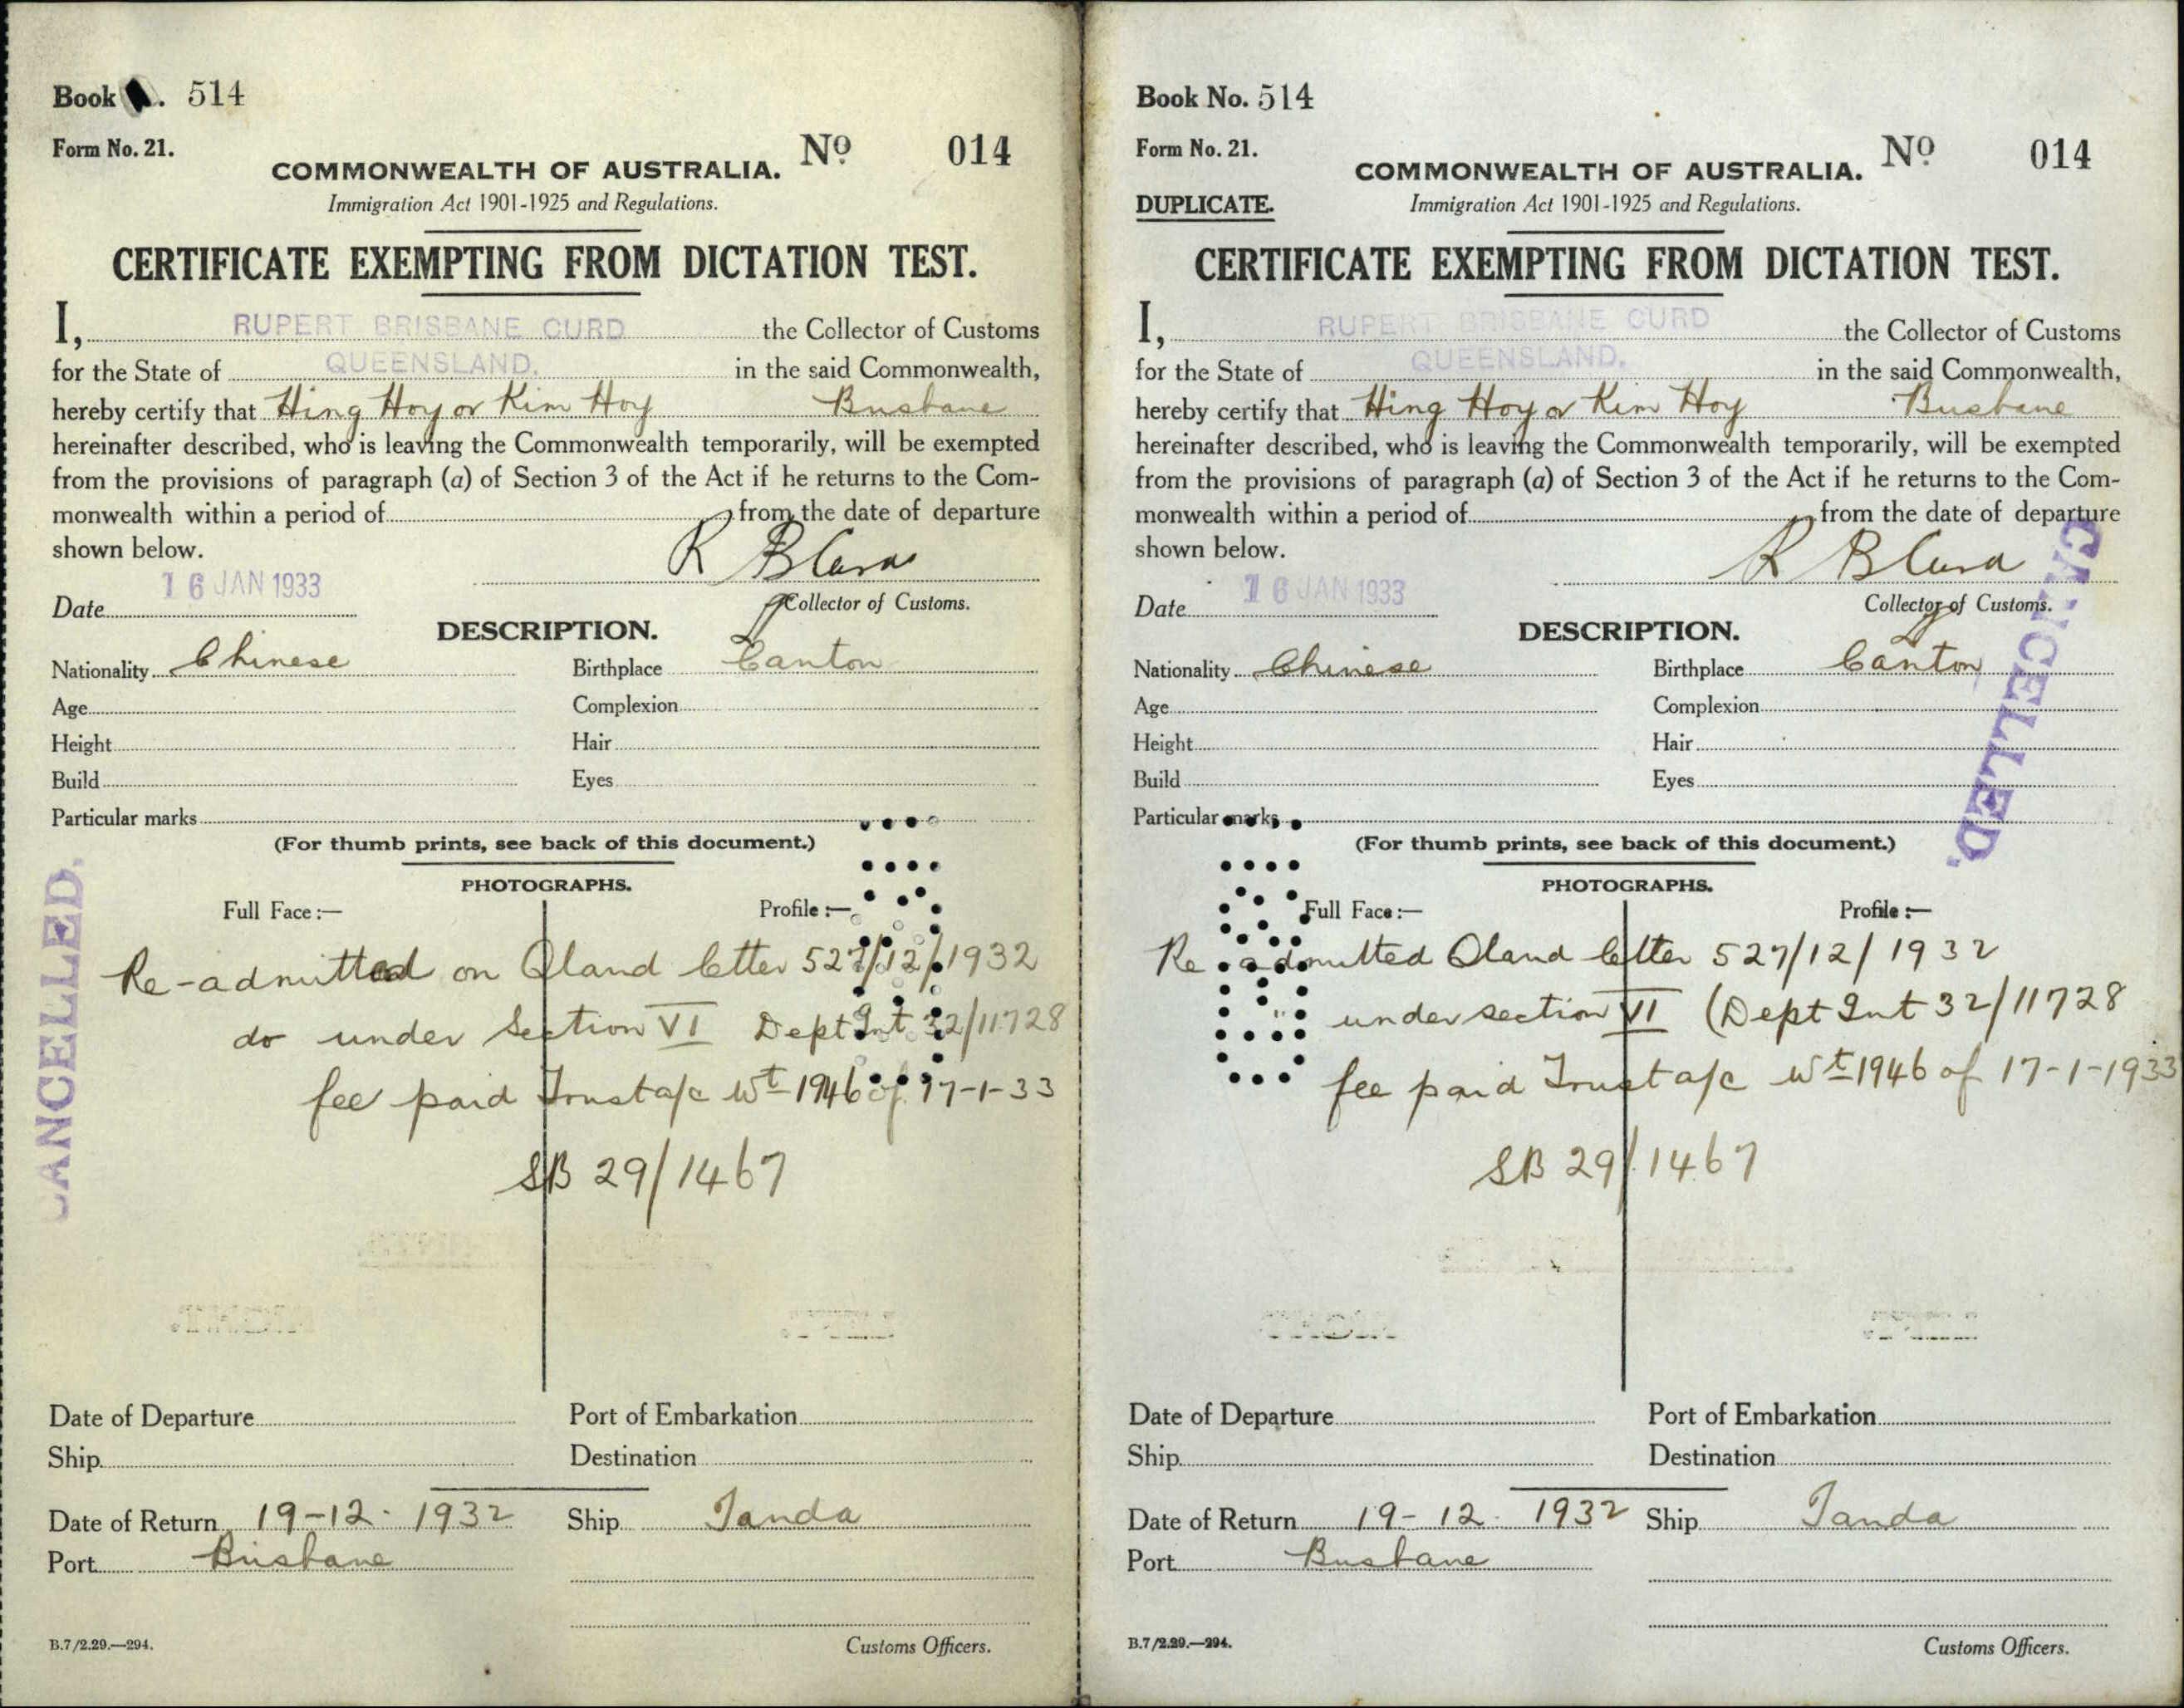 Book . 514
Form No. 21.
Nº 014
COMMONWEALTH OF AUSTRALIA.
Immigration Act 1901-1925 and Regulations.
CERTIFICATE EXEMPTING FROM DICTATION TEST.
I, RUPERT BRISBANE CURD the Collector of Customs
for the State of QUEENSLAND. in the said Commonwealth,
hereby certify that Hing Hoy or Kim Hoy Brisbane
hereinafter described, who is leaving the Commonwealth temporarily, will be exempted
from the provisions of paragraph (a) of Section 3 of the Act if he returns to the Com-
monwealth within a period of from the date of departure
shown below.
R B Curd
Date 16 JAN 1933
Collector of Customs.
DESCRIPTION.
Nationality Chinese Birthplace Canton
Age Complexion
Height Hair
Build Eyes
Particular marks
(For thumb prints, see back of this document.)
PHOTOGRAPHS.
Full Face :— Profile :—
CANCELLED.
Re-admitted on Qland letter 527/12/1932
do under Section VI Dept Int 32/11728
fee paid Trust a/c Wt 1946 of 17-1-33
SB 29/1467
Date of Departure Port of Embarkation
Ship Destination
Date of Return 19-12-1932 Ship Tanda
Port Brisbane
B.7/2.29.—294. Customs Officers.
Book No. 514
Form No. 21.
Nº 014
COMMONWEALTH OF AUSTRALIA.
DUPLICATE.
Immigration Act 1901-1925 and Regulations.
CERTIFICATE EXEMPTING FROM DICTATION TEST.
I, RUPERT BRISBANE CURD the Collector of Customs
for the State of QUEENSLAND. in the said Commonwealth,
hereby certify that Hing Hoy or Kim Hoy Brisbane
hereinafter described, who is leaving the Commonwealth temporarily, will be exempted
from the provisions of paragraph (a) of Section 3 of the Act if he returns to the Com-
monwealth within a period of from the date of departure
shown below.
R B Curd
Date 16 JAN 1933
Collector of Customs.
CANCELLED.
DESCRIPTION.
Nationality Chinese Birthplace Canton
Age Complexion
Height Hair
Build Eyes
Particular marks
(For thumb prints, see back of this document.)
PHOTOGRAPHS.
Full Face :— Profile :—
Re-admitted Qland letter 527/12/1932
under section VI (Dept Int 32/11728
fee paid Trust a/c Wt 1946 of 17-1-1933
SB 29/1467
Date of Departure Port of Embarkation
Ship Destination
Date of Return 19-12-1932 Ship Tanda
Port Brisbane
B.7/2.29.—294. Customs Officers.